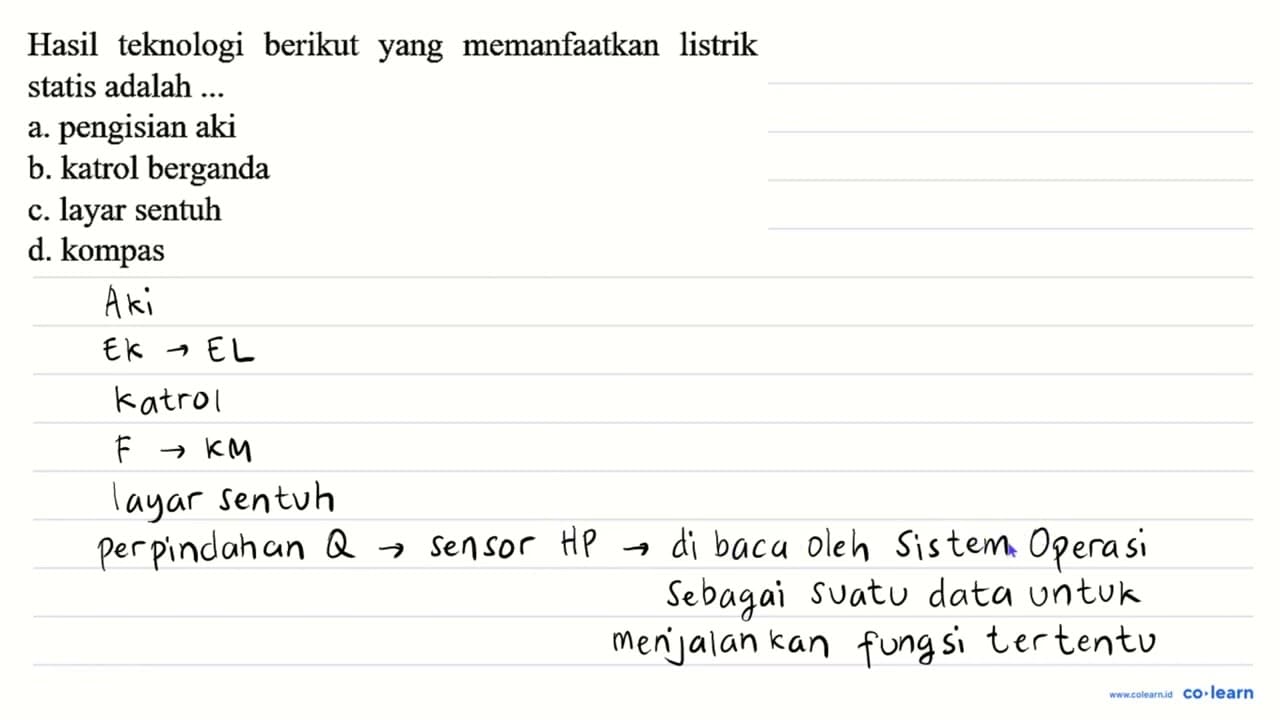 Hasil teknologi berikut yang memanfaatkan listrik
statis adalah ...
a. pengisian aki
b. katrol berganda
c. layar sentuh
d. kompas
Aki
EK → EL
Katrol
F → KM
layar sentuh
perpindahan Q → sensor HP → di baca oleh Sistem Operasi
Sebagai suatu data untuk
menjalankan fungsi tertentu
www.colearn.id co·learn